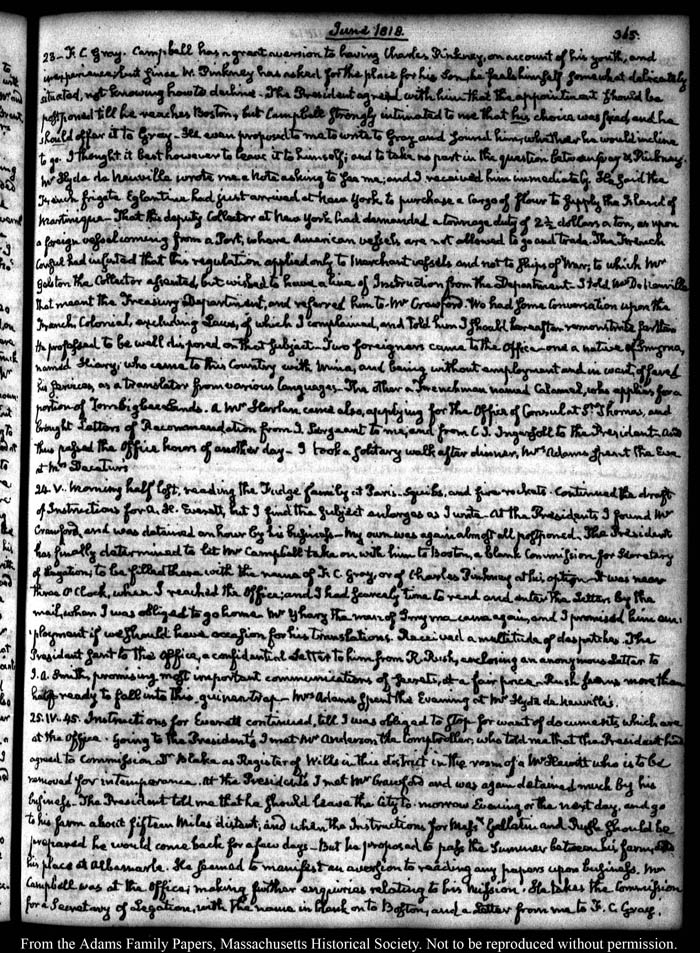 June 1818.
365.
23- F. C. Gray. Campbell has a great aversion to having Charles Pinkney, on account of his youth, and
inexperience, but since W. Pinkney has asked for the place for his Son, he feels himself somewhat delicately
situated, not knowing how to decline. The President agreed with him that the appointment should be
postponed till he reaches Boston, but Campbell strongly intimated to me that his choice was fixed and he
should offer it to Gray. He even proposed to me to write to Gray and sound him, whether he would incline
to go. I thought it best however to leave it to himself; and to take no part in the question between Gray & Pinkney.
Mr Hyde de Neuville wrote me a Note asking to see me; and I received him immediately. He said the
French frigate Eglantine had just arrived at New York to purchase a Cargo of flour to supply the Island of
Martinique. That the deputy Collector at New York had demanded a tonnage duty of 2½ dollars a ton, as upon
a foreign vessel coming from a Port, where American vessels are not allowed to go and trade. The French
Consul had insisted that this regulation applied only to Merchant vessels and not to Ships of War; to which Mr
Gelston the Collector assented, but wished to have a line of Instruction from the Department. I told Mr De Neuville
that meant the Treasury Department, and referred him to Mr Crawford. We had some Conversation upon the
French Colonial, excluding Laws, of which I complained, and told him I should hereafter remonstrate further
He professed to be well disposed on that Subject. Two foreigners came to the Office. one a native of Smyrna,
named Hiary, who came to this Country with Mina, and being without employment and in want, offered
his services, as a translator from various languages. The other a Frenchman named Calamel, who applies for a
portion of Tombigbee Lands. A Mr Harlan came also, applying for the Office of Consul at St. Thomas, and
brought Letters of Recommendation from J. Sergeant to me, and from C. J. Ingersoll to the President. And
thus passed the Office hours of another day. I took a solitary walk after dinner, Mrs Adams spent the Eve
at Mrs Decatur's
24. V. Morning half lost, reading the Fudge family at Paris. Squibs, and fire rockets. Continued the draft
of Instructions for A. H. Everett, but I find the subject enlarges as I write. At the Presidents I found Mr
Crawford, and was detained an hour by his business. My own was again almost all postponed. The President
has finally determined to let Mr Campbell take on with him to Boston, a blank Commission for Secretary
of Legation, to be filled there with the name of F. C. Gray, or of Charles Pinkney at his option. It was near
three O'Clock, when I reached the Office; and I had scarcely time to read and enter the Letters by the
mail, when I was obliged to go home. Mr the man of Smyrna came again, and I promised him em-
ployment if we should have occasion for his translations. Received a multitude of despatches. The
President sent to the Office, a confidential Letter to him from R. Rush, enclosing an anonymous Letter to
J. A. Smith, promising most important communications of secrets, at a fair price. Rush seems more than
half ready to fall into this guinea trap. Mrs Adams spent the Evening at Mr Hyde de Neuville's.
25. IV. 45. Instructions for Everett continued, till I was obliged to stop for want of documents, which are
at the Office. Going to the Presidents I met Mr Anderson the Comptroller, who told me that the President had
agreed to Commission Dr Blake as Register of Wills in this district in the room of a Mr Hewitt who is to be
removed for intemperance. At the Presidents I met Mr Crawford and was again detained much by his
business. The President told me that he should leave the City to-morrow Evening or the next day, and go
to his farm about fifteen Miles distant; and when the Instructions for Messrs Gallatin and Rush should be
prepared he would come back for a few days. But he proposed to pass the Summer between his farm, and
his place at Albemarle. He seemed to manifest an aversion to reading any papers upon business. Mr
Campbell was at the Office; making further enquiries relating to his Mission. He takes the Commission
for a Secretary of Legation, with the name in blank on to Boston, and a Letter from me to F. C. Gray.
From the Adams Family Papers, Massachusetts Historical Society. Not to be reproduced without permission.